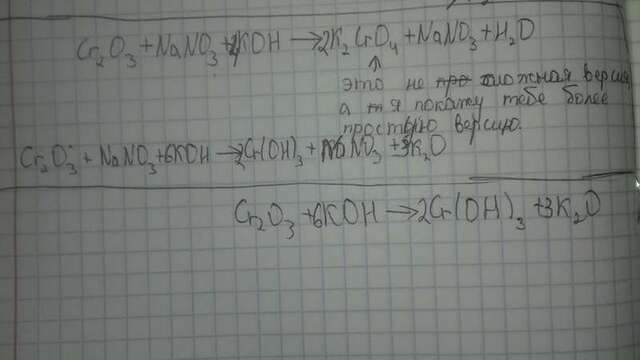 Cr₂O₃ + NaNO₃ + 4KOH → 2K₂CrO₄ + NaNO₃ + H₂O
↑
это не сложная версия
а я покажу тебе более
простую версию.
Cr₂O₃ + NaNO₃ + 6KOH → 2Cr(OH)₃ + NaNO₃ + 3K₂O
Cr₂O₃ + 6KOH → 2Cr(OH)₃ + 3K₂O